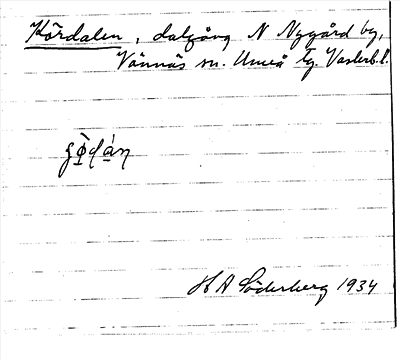 Kördalen, dalgång N Nygård by,
Vännäs sn. Umeå tg. Västerb. l.
H A Söderberg 1934